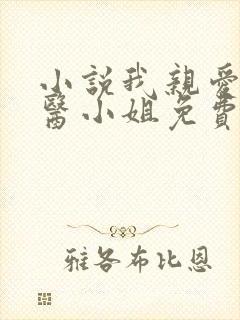 小説我親愛
醫小姐免費
雅各布比恩